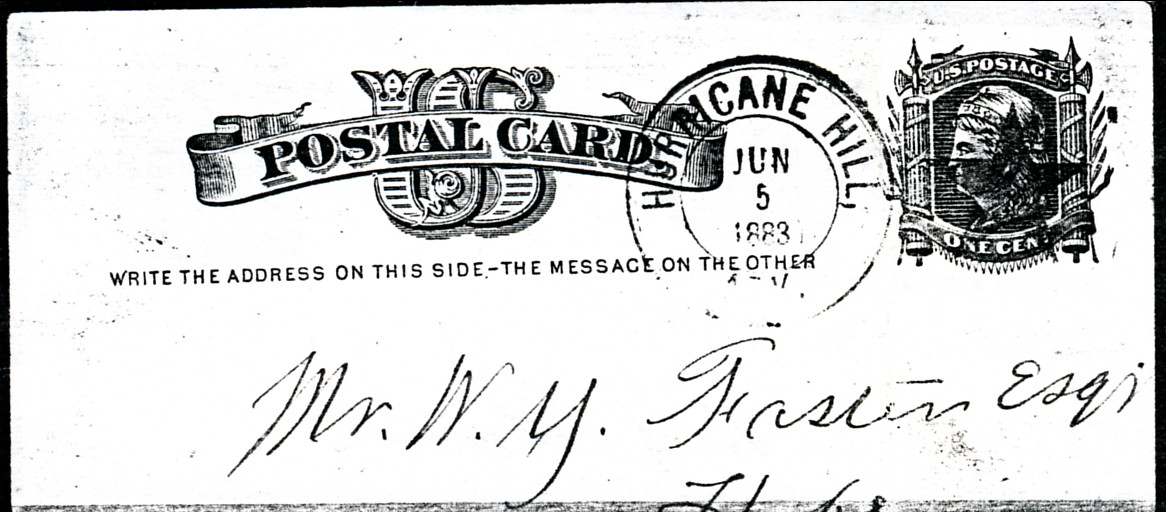 US
POSTAL CARD
HURRICANE HILL,
JUN
5
1883
U.S. POSTAGE
ONE CENT
WRITE THE ADDRESS ON THIS SIDE,-THE MESSAGE ON THE OTHER
Mr. W. Y. Esqr